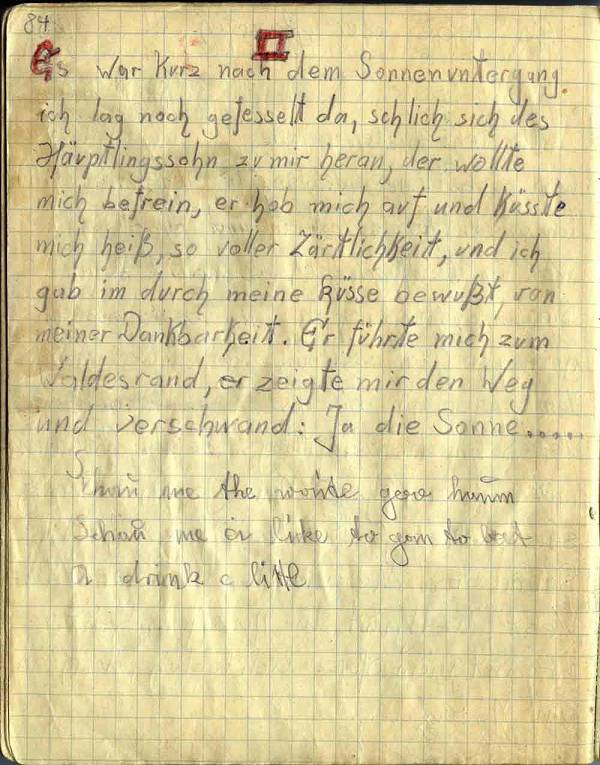 84.
II
Es war Kurz nach dem Sonnenuntergang.
ich lag noch gefesselt da, schlich sich des
Häuptlingssohn zu mir heran, der wollte
mich befrein, er hob mich auf und Küsste
mich heiß, so voller Zärtlichkeit, und ich
gab im durch meine Küsse bewußt, von
meiner Dankbarkeit. Er führte mich zum
Waldesrand, er zeigte mir den Weg
und verschwand: Ja die Sonne.....
me the gero
me to gom to
drink a little